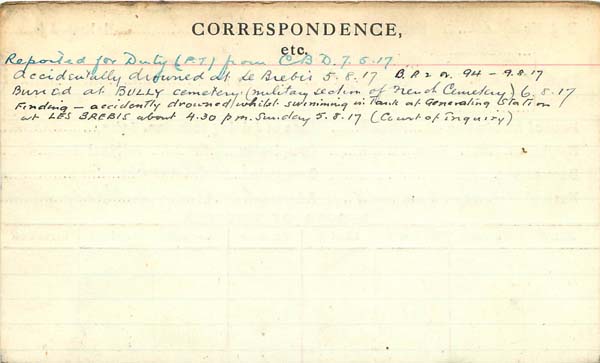 CORRESPONDENCE,
etc.
Reported for Duty (P.T.) from C B D. 7.5.17
accidentally drowned at Le Brebis 5.8.17 B.R 2 or. 94 - 9.8.17
Buried at BULLY cemetery (military section of French Cemetery) 6.8.17
Finding - accidently drowned whilst swimming in Tank at Generating Station
at LES BREBIS about 4.30 p.m. Sunday 5.8.17 (Court of Inquiry)